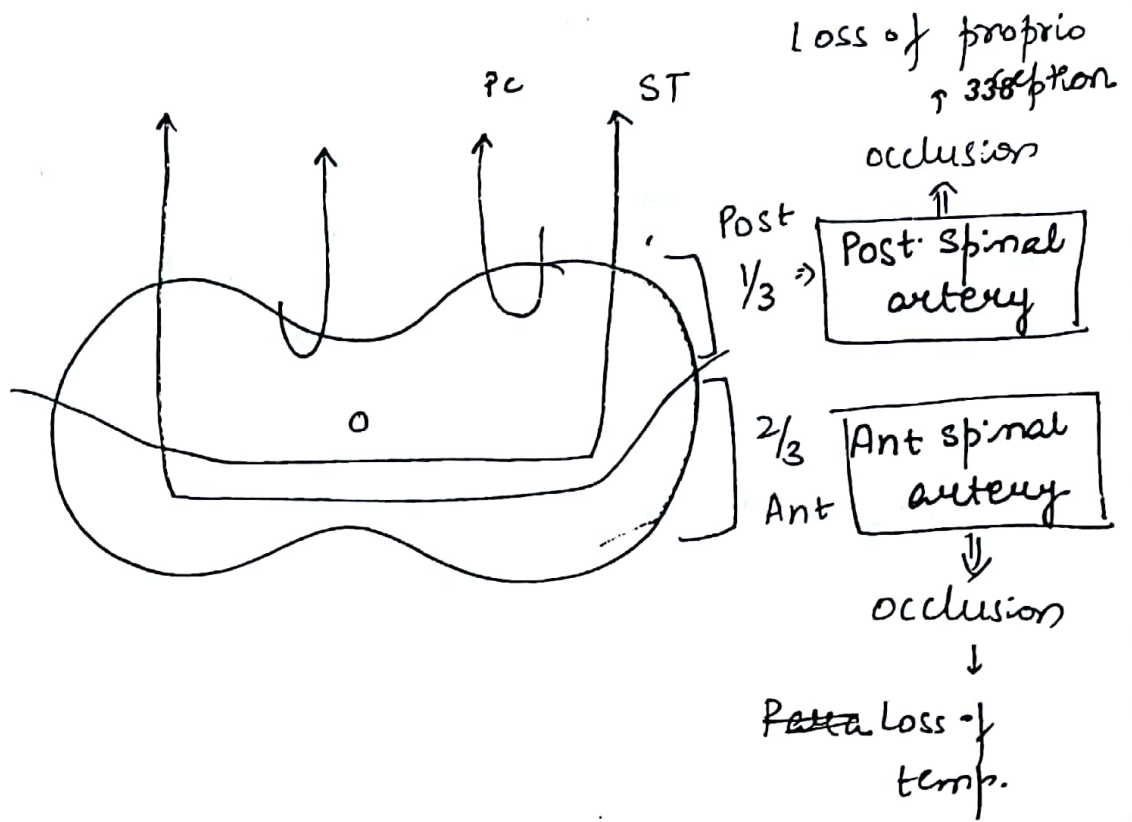 Loss of proprio
↑ 338eption
occlusion
⇑
PC
ST
Post
1/3 ⇒
Post. spinal
artery
2/3
Ant
Ant spinal
artery
⇓
occlusion
↓
Loss of
temp.
O